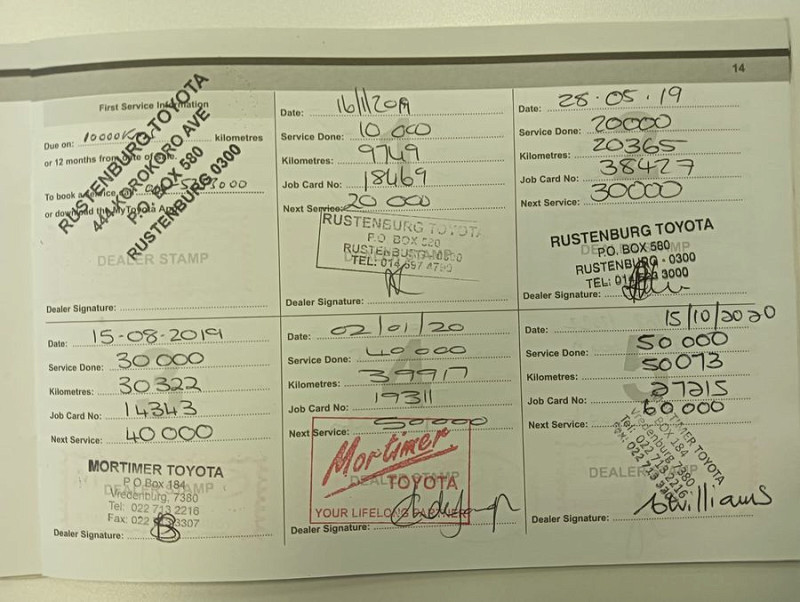 14
First Service Information
Due on: 10000K kilometres
or 12 months from date of sale.
To book a service, 3000
or download the MyToyota App
RUSTENBURG TOYOTA
KOROKORO AVE
P.O. BOX 580
RUSTENBURG 0300
DEALER STAMP
Dealer Signature:
Date: 16/1/2019
Service Done: 10 000
Kilometres: 9749
Job Card No: 18469
Next Service: 20 000
RUSTENBURG TOYOTA
P.O. BOX 580
RUSTENBURG 0300
TEL: 014 597 4790
Dealer Signature:
Date: 28.05.19
Service Done: 20000
Kilometres: 20365
Job Card No: 38427
Next Service: 30000
RUSTENBURG TOYOTA
P.O. BOX 580
RUSTENBURG - 0300
TEL: 3000
Dealer Signature:
Date: 15-08-2019
Service Done: 30000
Kilometres: 30322
Job Card No: 14343
Next Service: 40000
MORTIMER TOYOTA
P O Box 184
Vredenburg, 7380
Tel: 022 713 2216
Fax: 022 3307
DEALER STAMP
Dealer Signature:
Date: 02/01/20
Service Done: 40000
Kilometres: 39917
Job Card No: 19311
Next Service: 50000
Mortimer
TOYOTA
YOUR LIFELONG PARTNER
Dealer Signature:
Date: 15/10/2020
Service Done: 50 000
Kilometres: 50073
Job Card No: 27215
Next Service: 60 000
5
MORTIMER TOYOTA
P O BOX 184
Vredenburg 7380
Tel: 022 713 2216
Fax: 022 713
DEALER STAMP
Dealer Signature: Williams